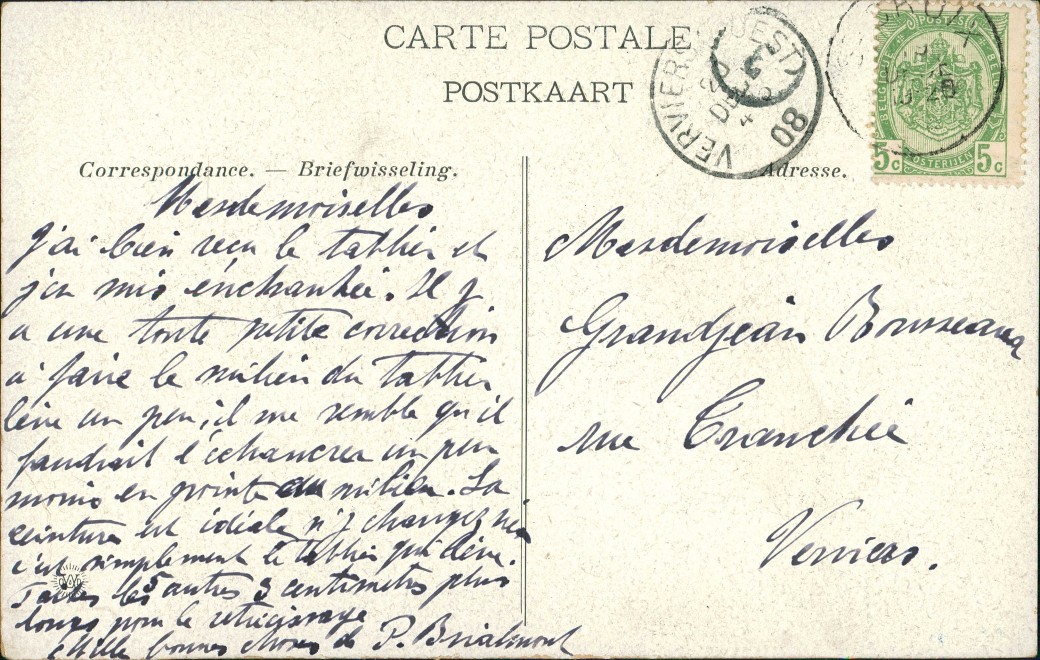 CARTE POSTALE
POSTKAART
VERVIERS (OUEST)
08
POSTES
BELGIQUE
POSTERIJEN
5c 5c
Correspondance. — Briefwisseling.
Adresse.
Mesdemoiselles
J'ai bien reçu le tablier et
j'en suis enchantée. Il y
a une toute petite correction
à faire le milieu du tablier
lève un peu, il me semble qu'il
faudrait l'échancrer un peu
moins en pointe au milieu. La
ceinture est idéale n'y changez rien
c'est simplement le tablier qui lève.
Faites les 5 autres 3 centimètres plus
longs pour le rétrécissage
Mille bonnes choses de P. Brialmont
Mesdemoiselles
Grandjean Bousseaux
rue Tranchée
Verviers.